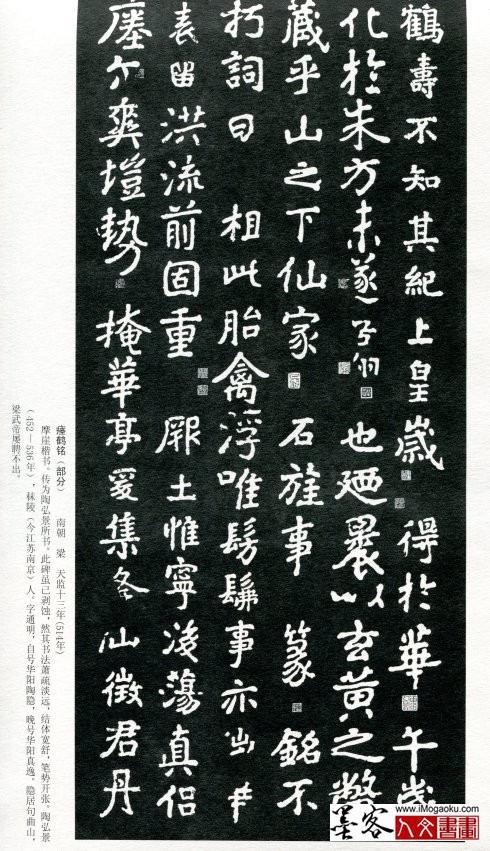 鶴壽不知其紀上皇歲得於華午歲
化於朱方未遂吾翔也廼裹以玄黃之幣
藏乎山之下仙家石旌事篆銘不
朽詞曰相此胎禽浮唯髣髴事亦
表留洪流前固重厥土惟寧後蕩真侶
爽塏勢掩華亭爰集仙徵君丹
瘗鹤铭（部分） 南朝 梁 天监十三年(514年)
摩崖楷书。传为陶弘景所书。此碑虽已剥蚀，然其书法萧疏淡远，结体宽舒，笔势开张。陶弘景
（452—536年），秣陵（今江苏南京）人。字通明，自号华阳陶隐，晚号华阳真逸。隐居句曲山，
梁武帝屡聘不出。
www.iMogaoku.com
墨客
人文書畫